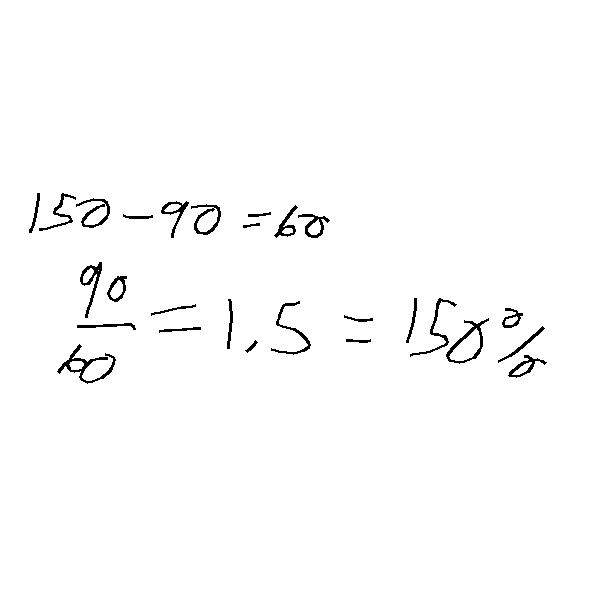 150-90=60
90/60 = 1,5 = 150%